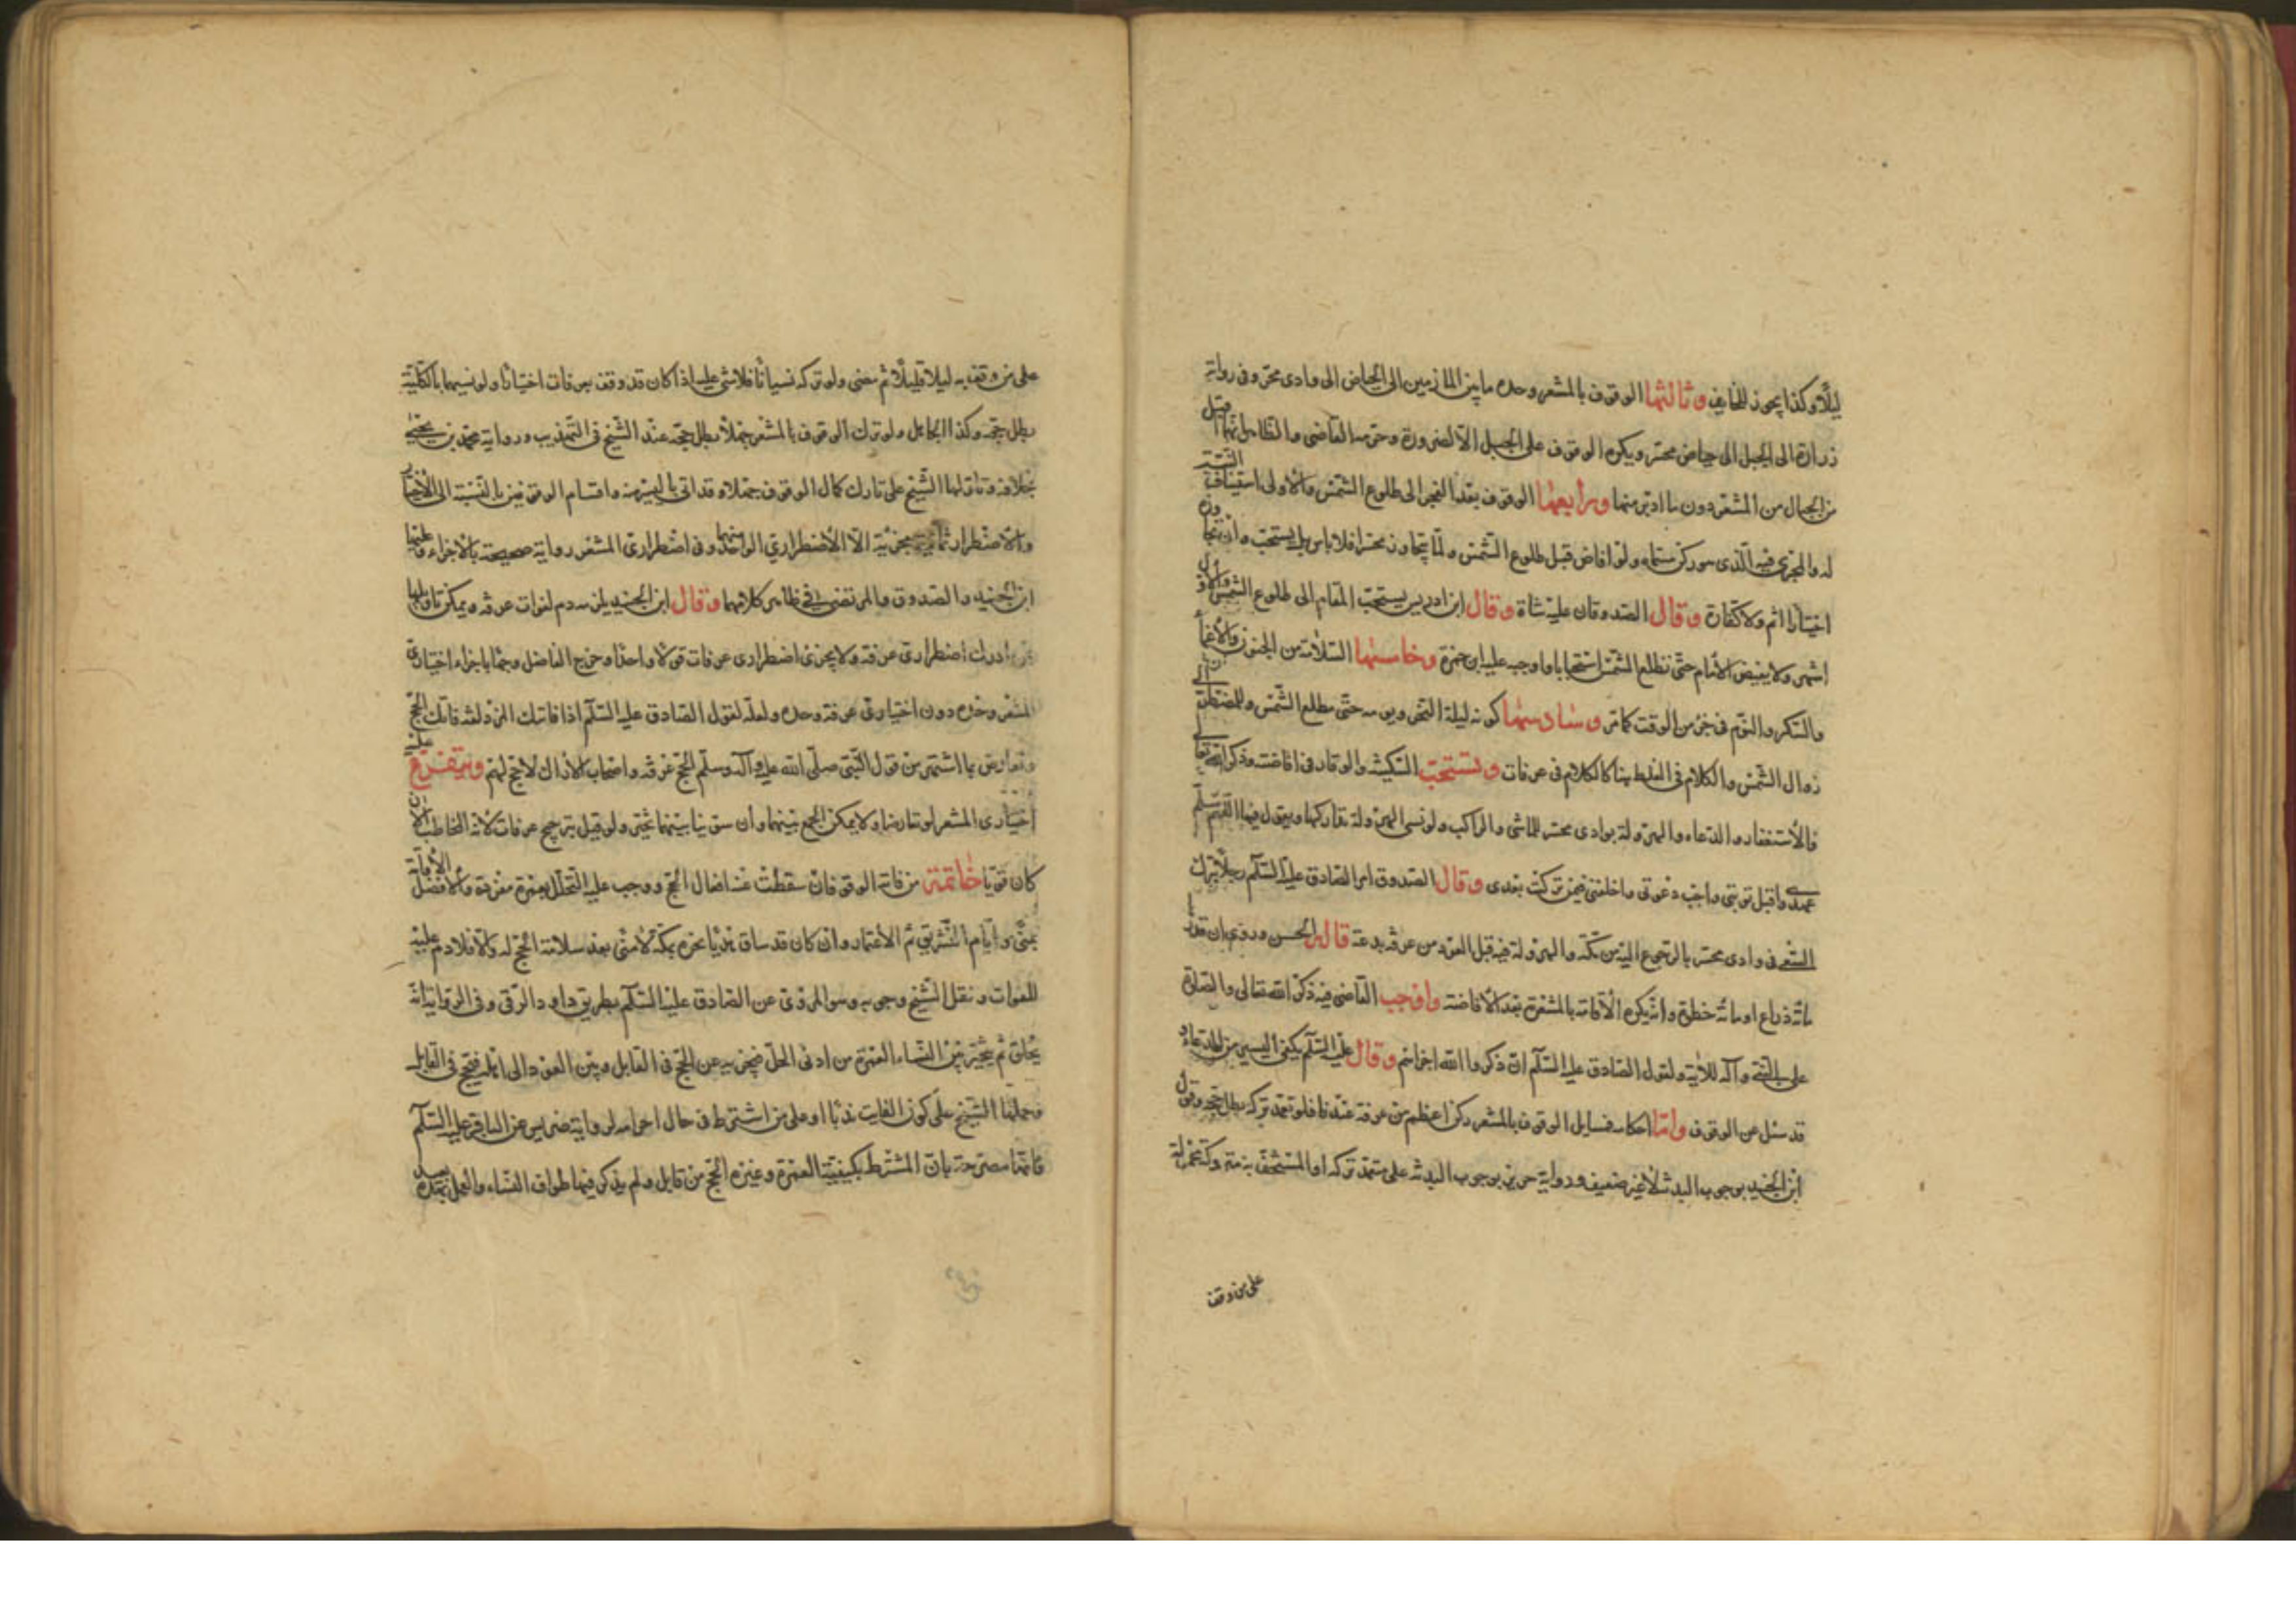 ليلًا وكذا يجوز للخايف وثالثها الوقوف بالمشعر وحده ما بين المازمين الى الحياض الى وادى محسر وفى رواية
زرارة الى الجبل الى حياض محسر ويكره الوقوف على الجبل الا لضرورة وحرمه القاضى والظاهر انها ما اقبل
من الجبال من المشعر دون ما ادبر منها ورابعها الوقوف بعد الفجر الى طلوع الشمس والاولى استيناف النية
له والمجزى فيه الذى هو ركن مسماه ولو افاض قبل طلوع الشمس ولما يتجاوز محسرا فلا باس بل يستحب وان تجاوزه
اختيارا اثم ولا كفارة وقال الصدوقان عليه شاة وقال ابن ادريس يستحب المقام الى طلوع الشمس والاول
اشهر ولا يفيض الامام حتى تطلع الشمس استحبابا واوجبه عليه ابن حمزة وخامسها السلامة من الجنون والاغماء
والسكر والنوم فى جزء من الوقت كما مر وسادسها كونه ليلة النحر ويومه حتى مطلع الشمس وللمضطر الى
زوال الشمس والكلام فى الغلط هنا كالكلام فى عرفات وتستحب السكينة والوقار فى افاضته وذكر الله تعالى
والاستغفار والدعاء والهرولة بوادى محسر للماشى والراكب ولو نسى الهرولة تداركها ويقول فيها اللهم سلم
عهدى واقبل توبتى واجب دعوتى واخلفنى فيمن تركت بعدى وقال الصدوق امر الصادق عليه السلم رجلا ترك
السعى فى وادى محسر بالرجوع اليه من مكة والهرولة فيه قبل العود من عرفة بدعة قاله الحسن وروى ان قدرها
مائة ذراع او مائة خطوة وانه يكره الاقامة بالمشعر بعد الافاضة واوجب القاضى فيه ذكر الله تعالى والصلوة
على النبى وآله للاية ولقول الصادق عليه السلم ان ذكروا الله اجزاهم وقال عليه السلم يكفى اليسير من الدعاء
قد سئل عن الوقوف واما احكامه فمسايل الوقوف بالمشعر ركن اعظم من عرفة عندنا فلو تعمد تركه بطل حجه وقول
ابن الجنيد بوجوب البدنة لا غير ضعيف ورواية حريز بوجوب البدنة على متعمد تركه او المستخف به متروكة محمولة
على من وقف
على من وقف به ليلا قليلًا ثم مضى ولو تركه نسيانًا فلا شى عليه اذا كان قد وقف بعرفات اختيارًا ولو نسيهما بالكلية
بطل حجه وكذا الجاهل ولو ترك الوقوف بالمشعر جهلًا بطل حجه عند الشيخ فى التهذيب ورواية محمد بن يحيى
بخلافه وتاولها الشيخ على تارك كمال الوقوف جهلا وقد اتى باليسير منه واقسام الوقوفين بالنسبة الى الاختيار
والاضطرار ثمانية مجزئة الا الاضطرارى الواحد منهما وفى اضطرارى المشعر رواية صحيحة بالاجزاء وعليها
ابن الجنيد والصدوق والمرتضى فى ظاهر كلامهما وقال ابن الجنيد يلزمه دم لفوات عرفه ويمكن تاويلها
بمن ادرك اضطرارى عرفه ولا يجزى اضطرارى عرفات قولًا واحدًا وخرج الفاضل وجها باجزاء اختيارى
المشعر وحده دون اختيارى عرفة وحده ولعله لقول الصادق عليه السلم اذا فاتك المزدلفة فاتك الحج
وتعارض بما اشتهر من قول النبى صلى الله عليه وآله وسلم الحج عرفه واصحاب الاراك لا حج لهم ويتفرع عليه
اختيارى المشعر لو تعارضا ولا يمكن الجمع بينهما وان سوينا بينهما تخير ولو قيل بترجيح عرفات لانه المخاطب به الان
كان قويا خاتمة من فاته الوقوفان سقطت عنه افعال الحج ووجب عليه التحلل بعمرة مفردة والافضل الاقامة
بمنى ايام التشريق ثم الاعتمار وان كان قد ساق هديا نحره بمكة لا منى بعد سلامة الحج له والا فلا دم عليه
للفوات ونقل الشيخ وجوبه وهو المروى عن الصادق عليه السلم بطريق داود الرقى وفى الرواية انه
يحلق ثم يتخير بين انشاء العمرة من ادنى الحل فيجزيه عن الحج فى القابل وبين العود الى اهله فيحج فى القابل
وحملها الشيخ على كون الفايت ندبًا او على من اشترط فى حال احرامه لرواية ضريس عن الباقر عليه السلم
فانها مصرحة بان المشترط يكفيه العمرة وغيره الحج من قابل ولم يذكر فيها طواف النساء والعمل بهذه بعيد